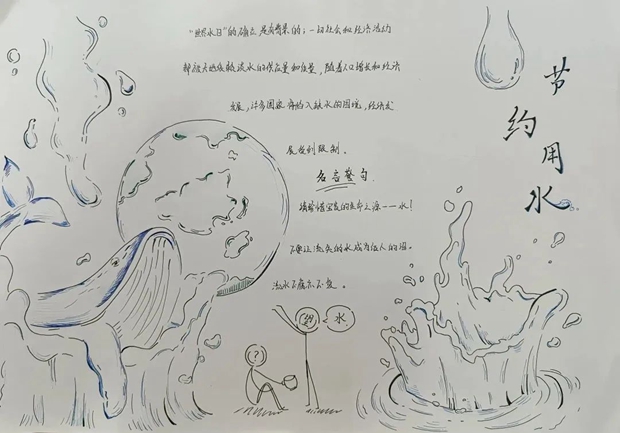 “世界水日”的确立是有背景的；一切社会和经济活动
都极大地依赖淡水的供应量和质量，随着人口增长和经济
发展，许多国家将陷入缺水的困境，经济发
展受到限制。
名言警句
请珍惜宝贵的生命之源——水！
不要让流失的水成为后人的泪。
流水不腐
?
水
节约用水